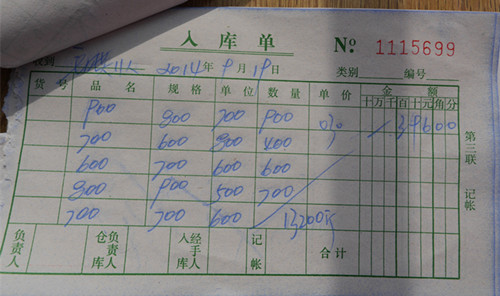 入库单 № 1115699
收到 2014年9月19日 类别 编号
货号 品名 规格 单位 数量 单价 金额
十万千百十元角分
900 800 700 900 03 39600
700 600 800 400
600 700 600 600
800 900 500 700
700 700 600 13200斤
负责人 仓库负责人 入库经手人 记帐 合计
第三联 记帐